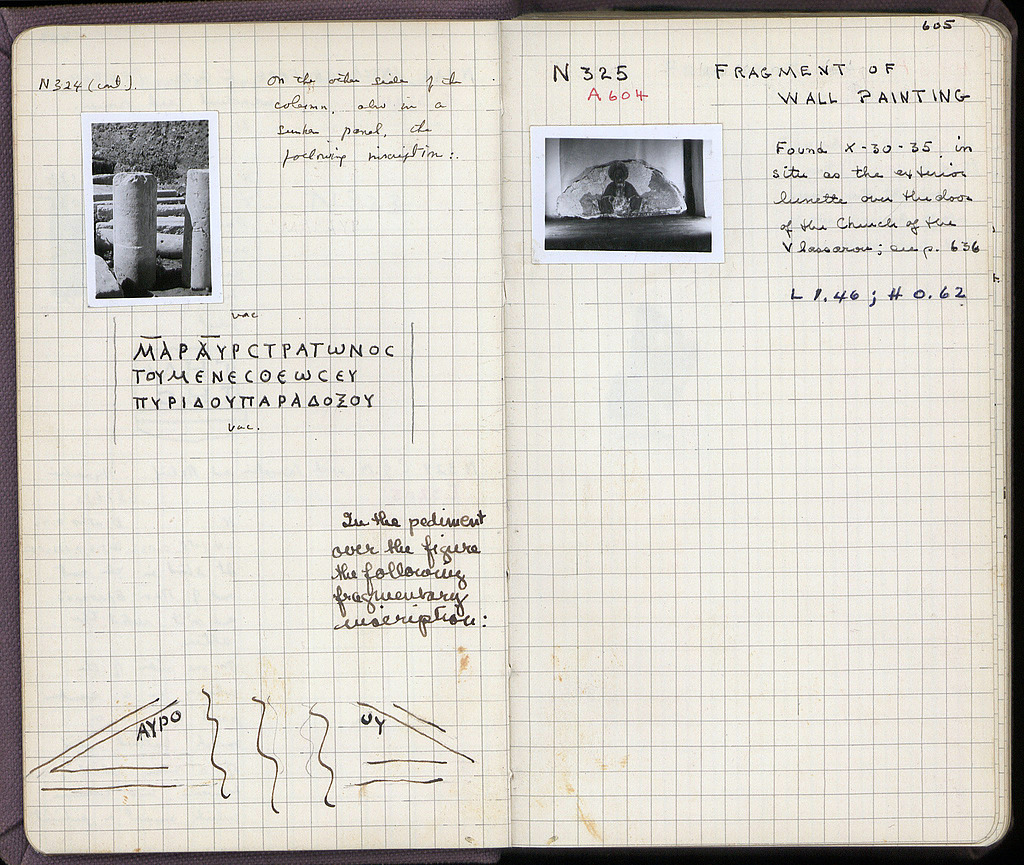 N 324 (cont).
On the other side of the
column, also in a
sunken panel, the
following inscription:.
vac
ΜΑΡΑΥΡCΤΡΑΤωΝΟC
ΤΟΥΜΕΝΕCΘΕωCΕΥ
ΠΥΡΙΔΟΥΠΑΡΑΔΟΞΟΥ
vac.
In the pediment
over the figure
the following
fragmentary
inscription:
ΑΥΡΟ
ΟΥ
605
N 325
A 604
FRAGMENT OF
WALL PAINTING
Found X-30-35 in
situ as the exterior
lunette over the door
of the Church of the
Vlassarou; see p. 636
L 1.46 ; H 0.62